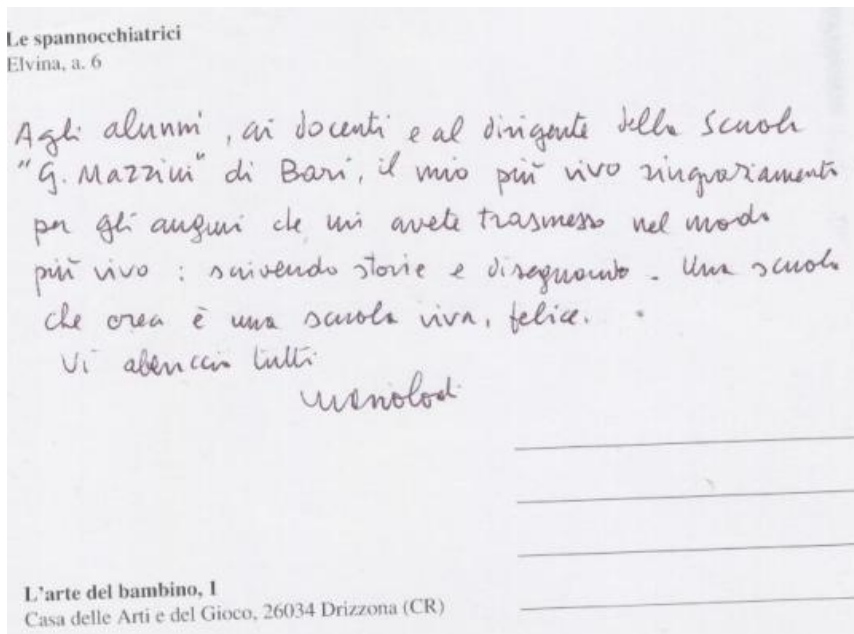 Le spannocchiatrici
Elvina, a. 6
Agli alunni, ai docenti e al dirigente della scuola
"G. Mazzini" di Bari, il mio più vivo ringraziamento
per gli auguri che mi avete trasmesso nel modo
più vivo: scrivendo storie e disegnando. Una scuola
che crea è una scuola viva, felice.
Vi abbraccio tutti
Mario Lodi
L'arte del bambino, 1
Casa delle Arti e del Gioco, 26034 Drizzona (CR)